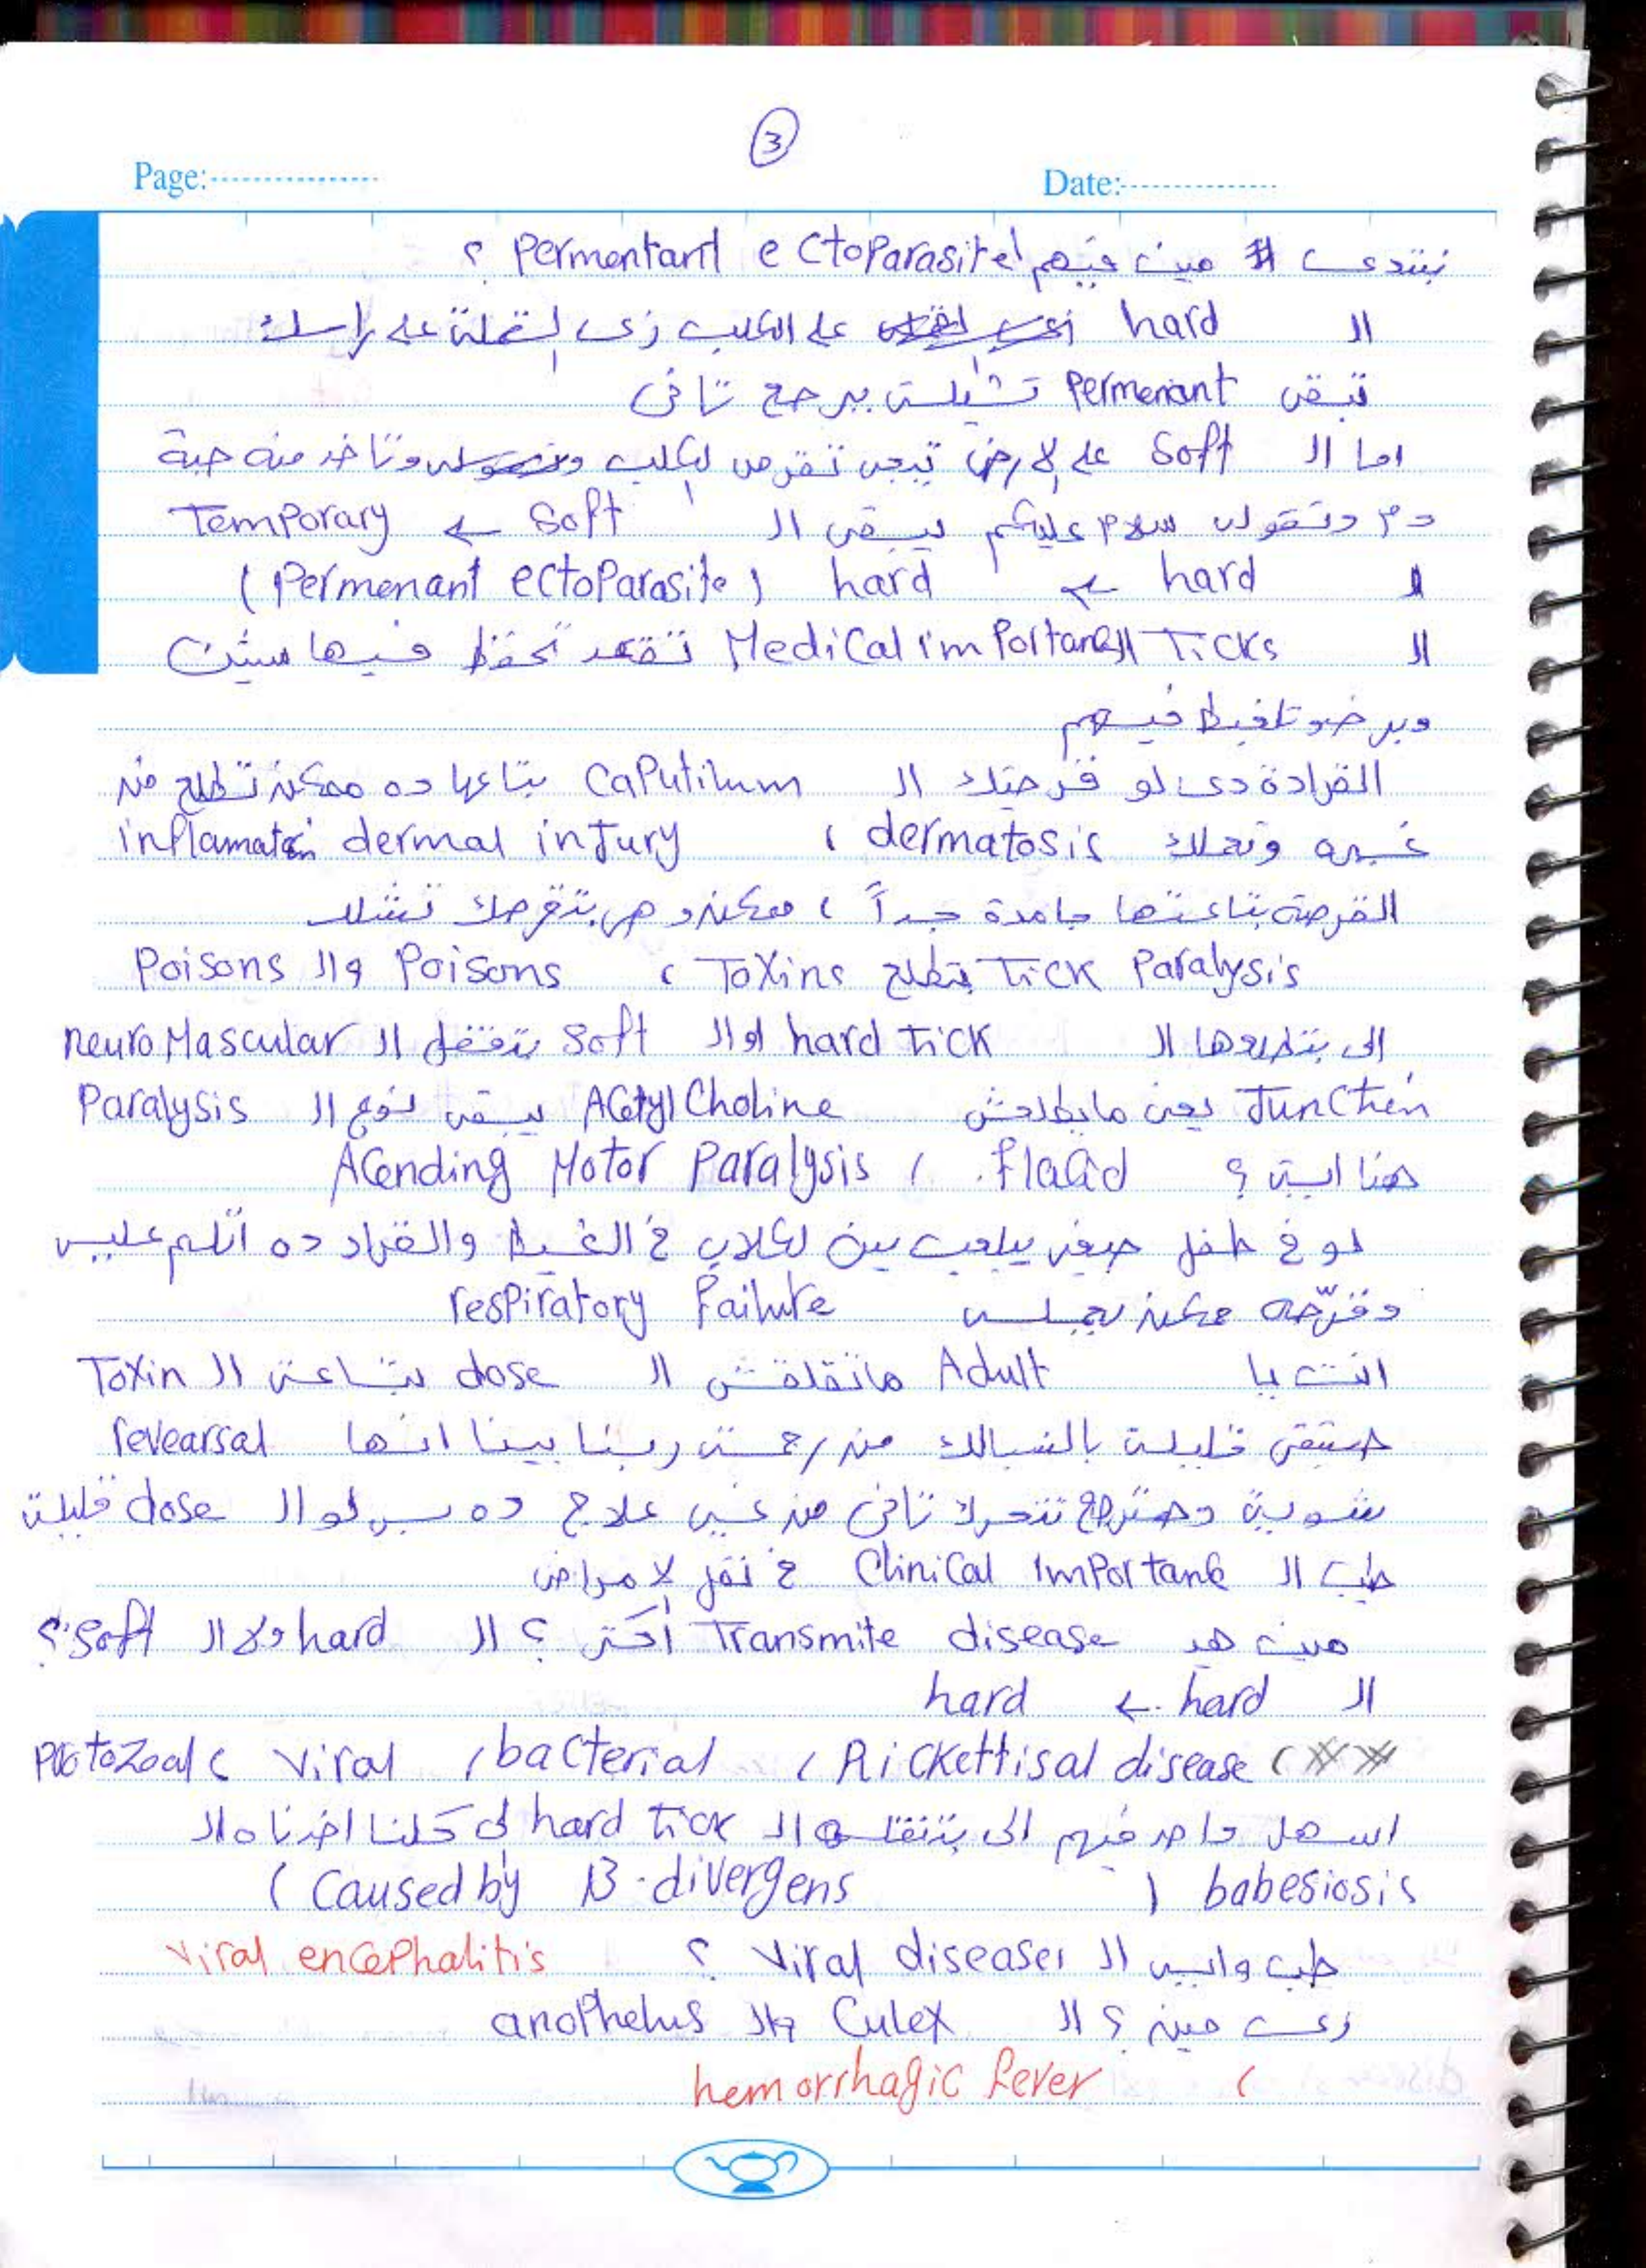 3
Page:
Date:
نبتدى # مين فيهم ال ectoparasite permentant ؟
ال hard على الكلب زى القملة على راسك
تبقى permenant تشيلت يرجع تانى
اما ال soft على الارض تيجى تقرص الكلب وتاخد منه حبة
دم وتقول سلام عليكم يبقى ال soft ← Temporary
hard ← hard (Permenant ectoparasite)
ال Ticks ال Medical importance تقعد تحفظ فيها سنتين
وبرضو تلغبط فيهم
القرادة دى لو قرصتك ال Caputilum بتاعها ده ممكن تطلع منه
غيره وتعملك dermatosis ، inflamaton dermal injury
القرصة بتاعتها جامدة جداً ، ممكن وهى بتقرصك تشلك
Tick Paralysis بتطلع Toxins ، Poisons وال Poisons
الى بتطلعها ال hard tick او ال soft بتقفل ال neuro Mascular
Junction يعنى مايطلعش Acetyl Choline يبقى نوع ال Paralysis
هنا ايه ؟ flacid ، Acending Motor Paralysis
لو فى طفل صغير بيلعب بين الكلاب فى الغيط والقراد ده اتلم عليه
وقرّصه ممكن يجيله respiratory failure
انت يا Adult ماتقلقش ال dose بتاعت ال Toxin
هتبقى قليلة بالنسبالك من رحمة ربنا بينا انها revearsal
شوية وهترجع تتحرك تانى من غير علاج ده بس لو ال dose قليلة
طب ال Clinical Importance فى نقل لامراض
مين هيـ Transmite disease أكتر ؟ ال hard ولا ال soft ؟
ال hard ← hard
## ، Rickettisal disease ، bacterial ، viral ، Protozoal
اسهل واحد فيهم الى بتنقله ال hard tick الى كلنا اخدناه ال
babesiosis (Caused by B.divergens)
طب وايه ال viral diseases ؟ viral encephalitis
زى مين ؟ ال Culex وال anophelus
، hemorrhagic fever